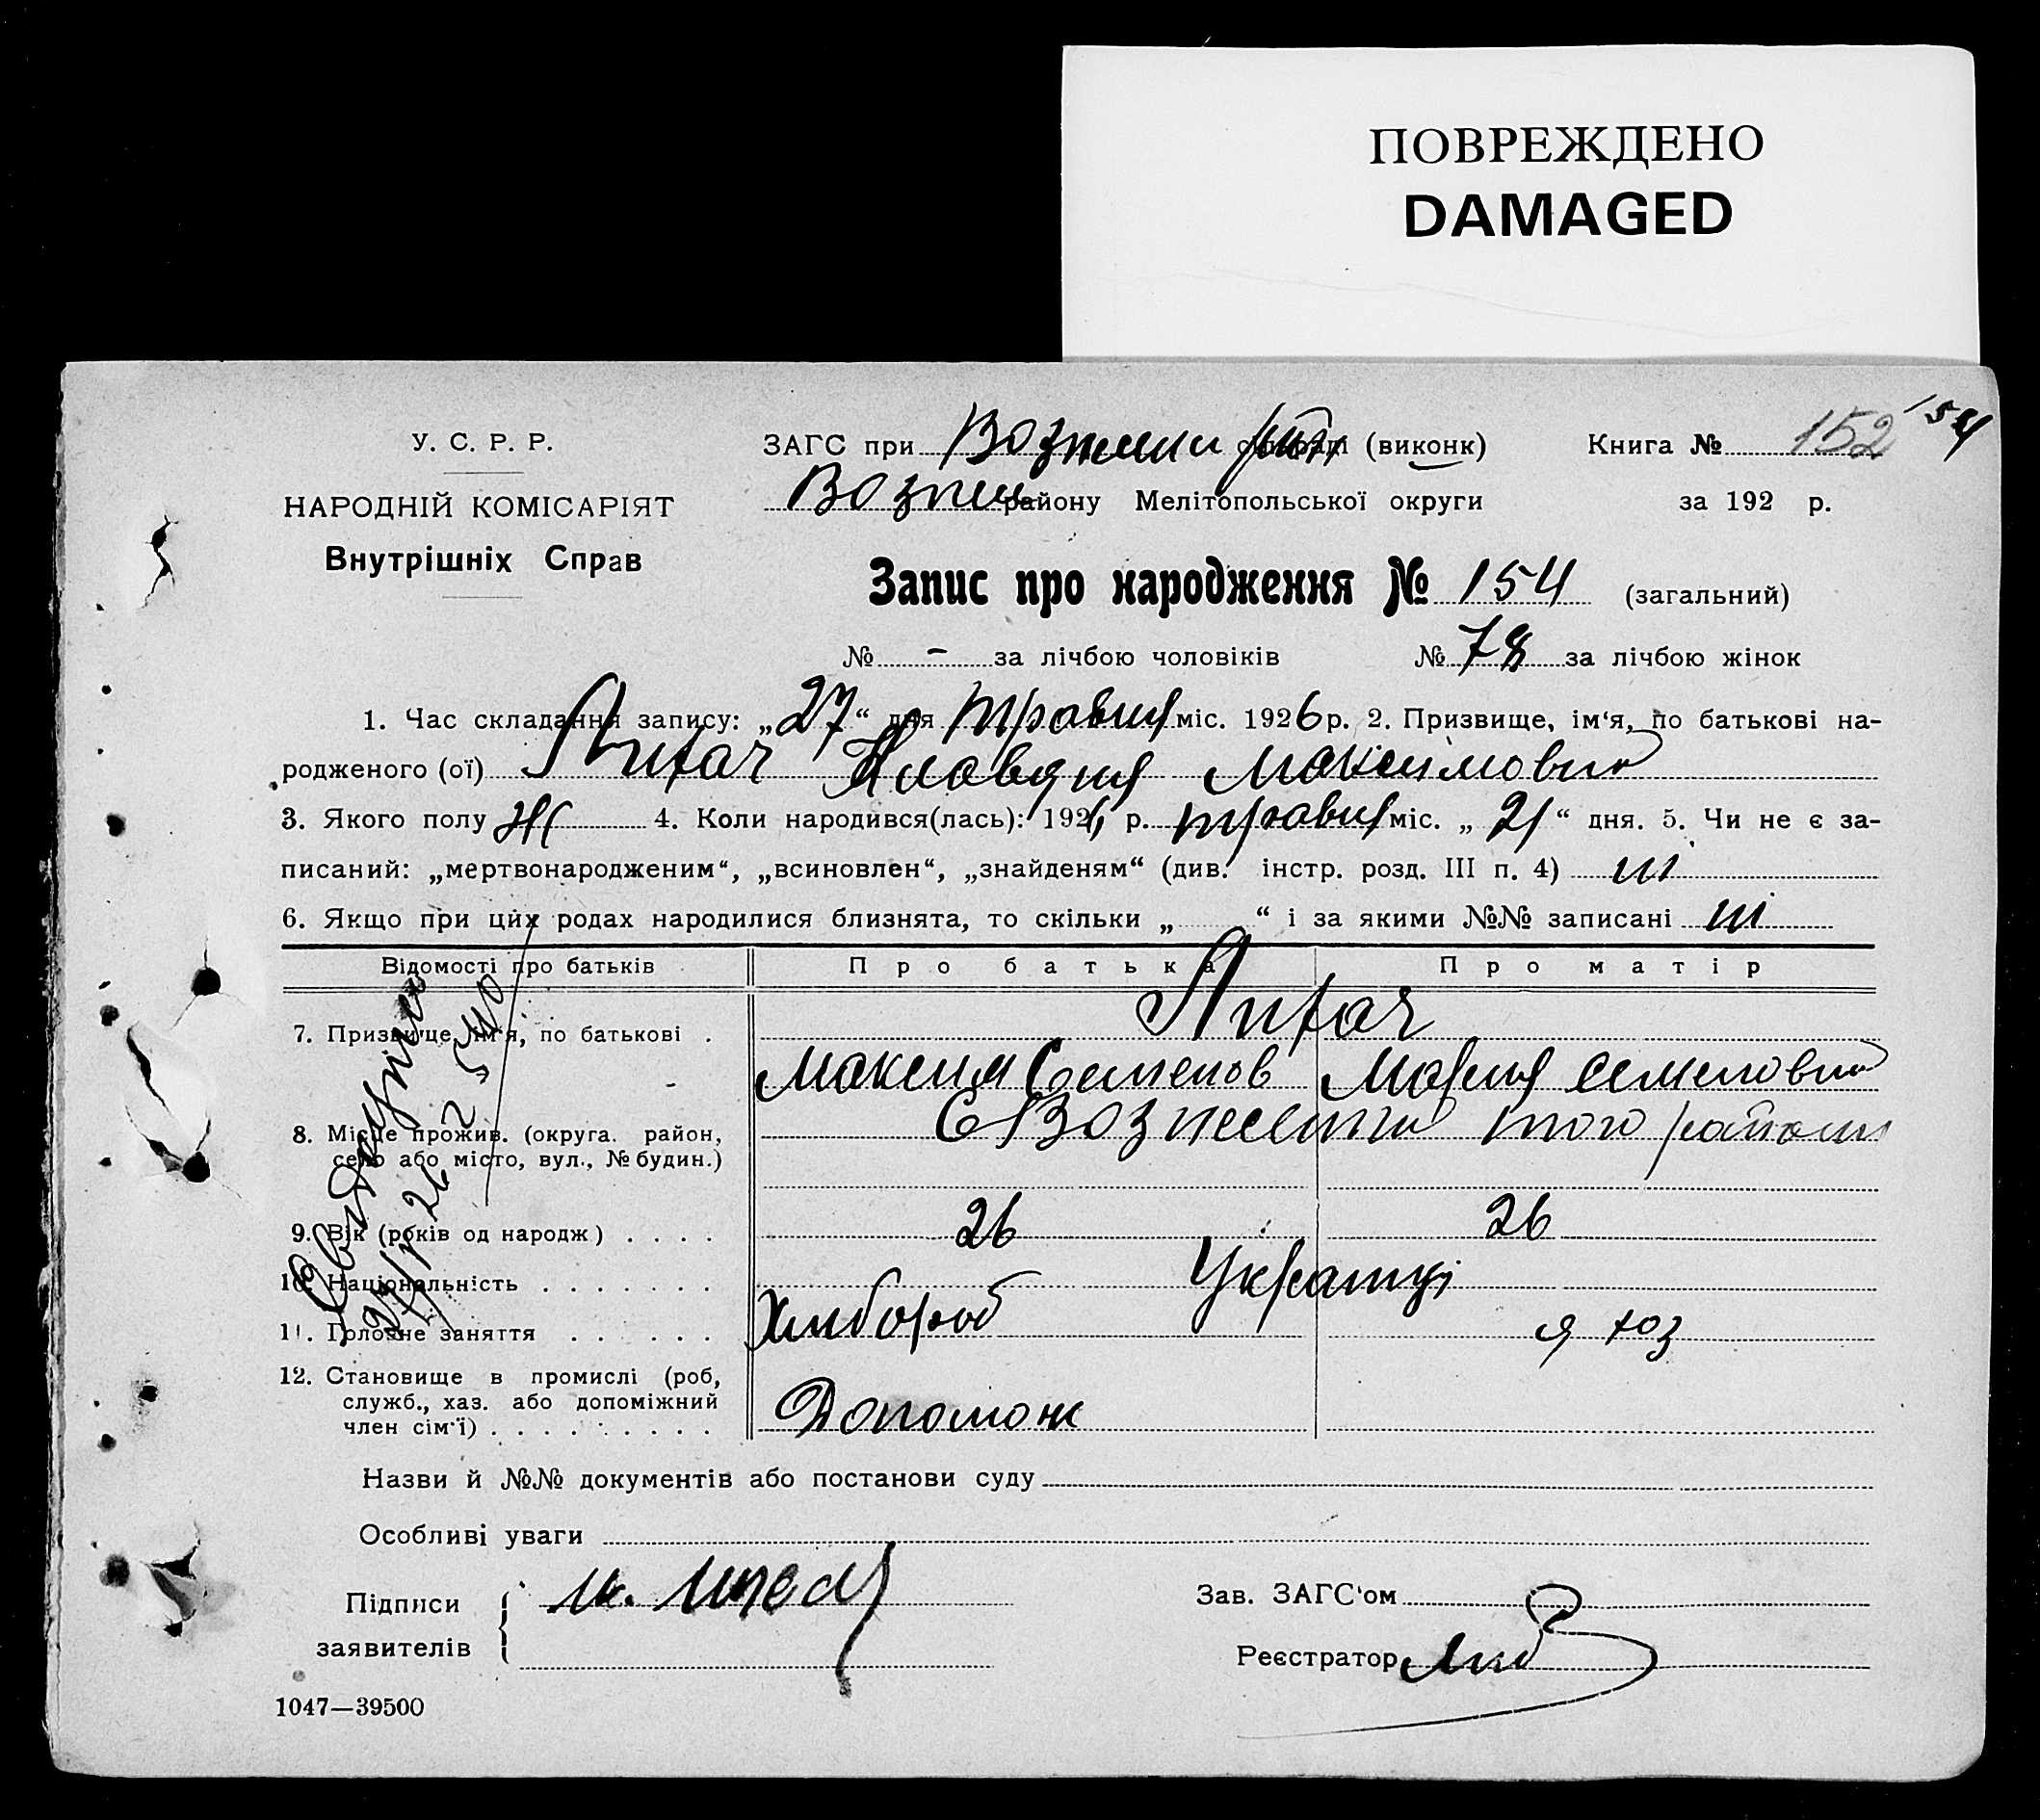 ПОВРЕЖДЕНО
DAMAGED
У. С. Р. Р.
НАРОДНІЙ КОМІСАРІЯТ
Внутрішніх Справ
ЗАГС при (виконк)
Вознес району Мелітопольської округи
Книга № 152 154
за 192 р.
Запис про народження № 154 (загальний)
№ - за лічбою чоловіків № 78 за лічбою жінок
1. Час складання запису: „27“ дня травня міс. 1926 р. 2. Призвище, ім‘я, по батькові на-
родженого (ої) Клавдия Максимовна
3. Якого полу Ж 4. Коли народився(лась): 1926 р. травня міс. „21“ дня. 5. Чи не є за-
писаний: „мертвонародженим“, „всиновлен“, „знайденям“ (див. інстр. розд. III п. 4) ні
6. Якщо при цих родах народилися близнята, то скільки „ “ і за якими №№ записані ні
Відомості про батьків Про батька Про матір
7. Призвище, ім‘я, по батькові .
Максим Семенов Мария Семеновна
8. Місце прожив. (округа. район, село або місто, вул., № будин.) С Вознесенка того району
9. Вік (років од народж) . . . . 26 26
10. Національність . . . . . . . Українці
11. Головне заняття . . . . . Хлібороб д хоз
12. Становище в промислі (роб, служб., хаз. або допоміжний член сім‘ї) . . . . . . . . . Допомож
Назви й №№ документів або постанови суду
Особливі уваги
Підписи
заявителів
Зав. ЗАГС‘ом
Реєстратор
1047—39500